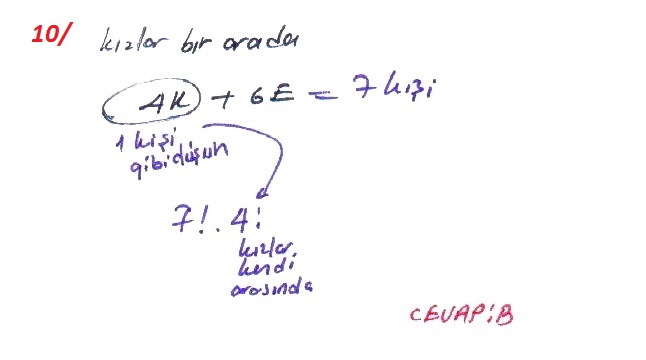 10/ kızlar bir arada
4K + 6E = 7 kişi
1 kişi
gibi düşün
7! . 4!
kızlar,
kendi
arasında
CEVAP: B